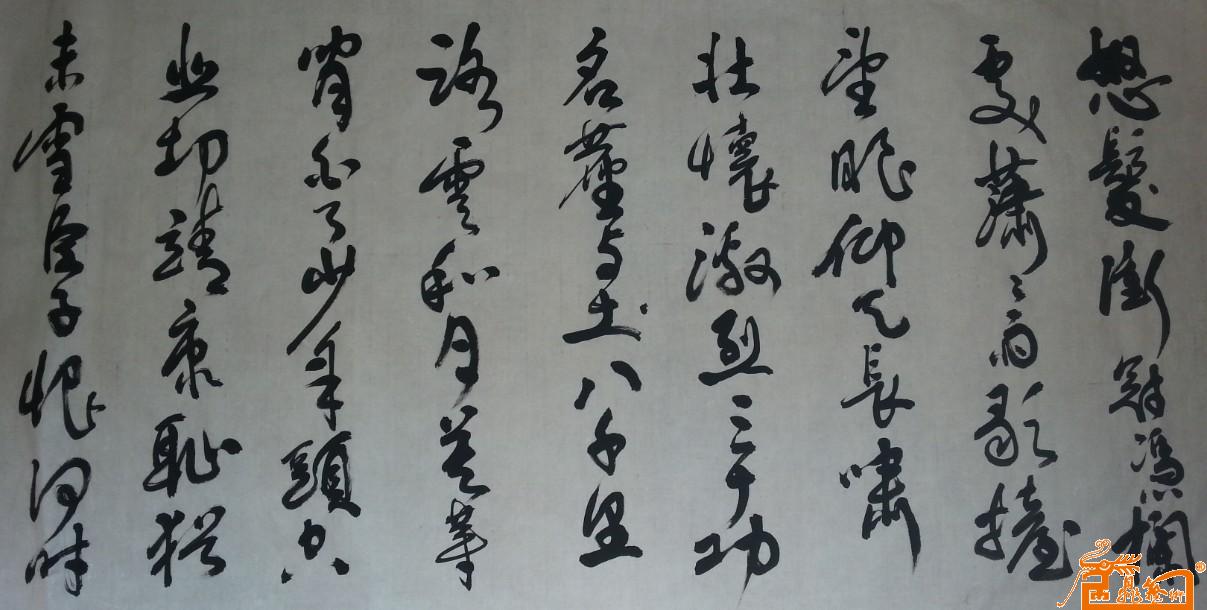 怒髮衝冠憑欄
處蕭々雨歇擡
望眼仰天長嘯
壯懷激烈三十功
名塵与土八千里
路雲和月莫等
閒白了少年頭空
悲切靖康恥猶
未雪臣子恨何時